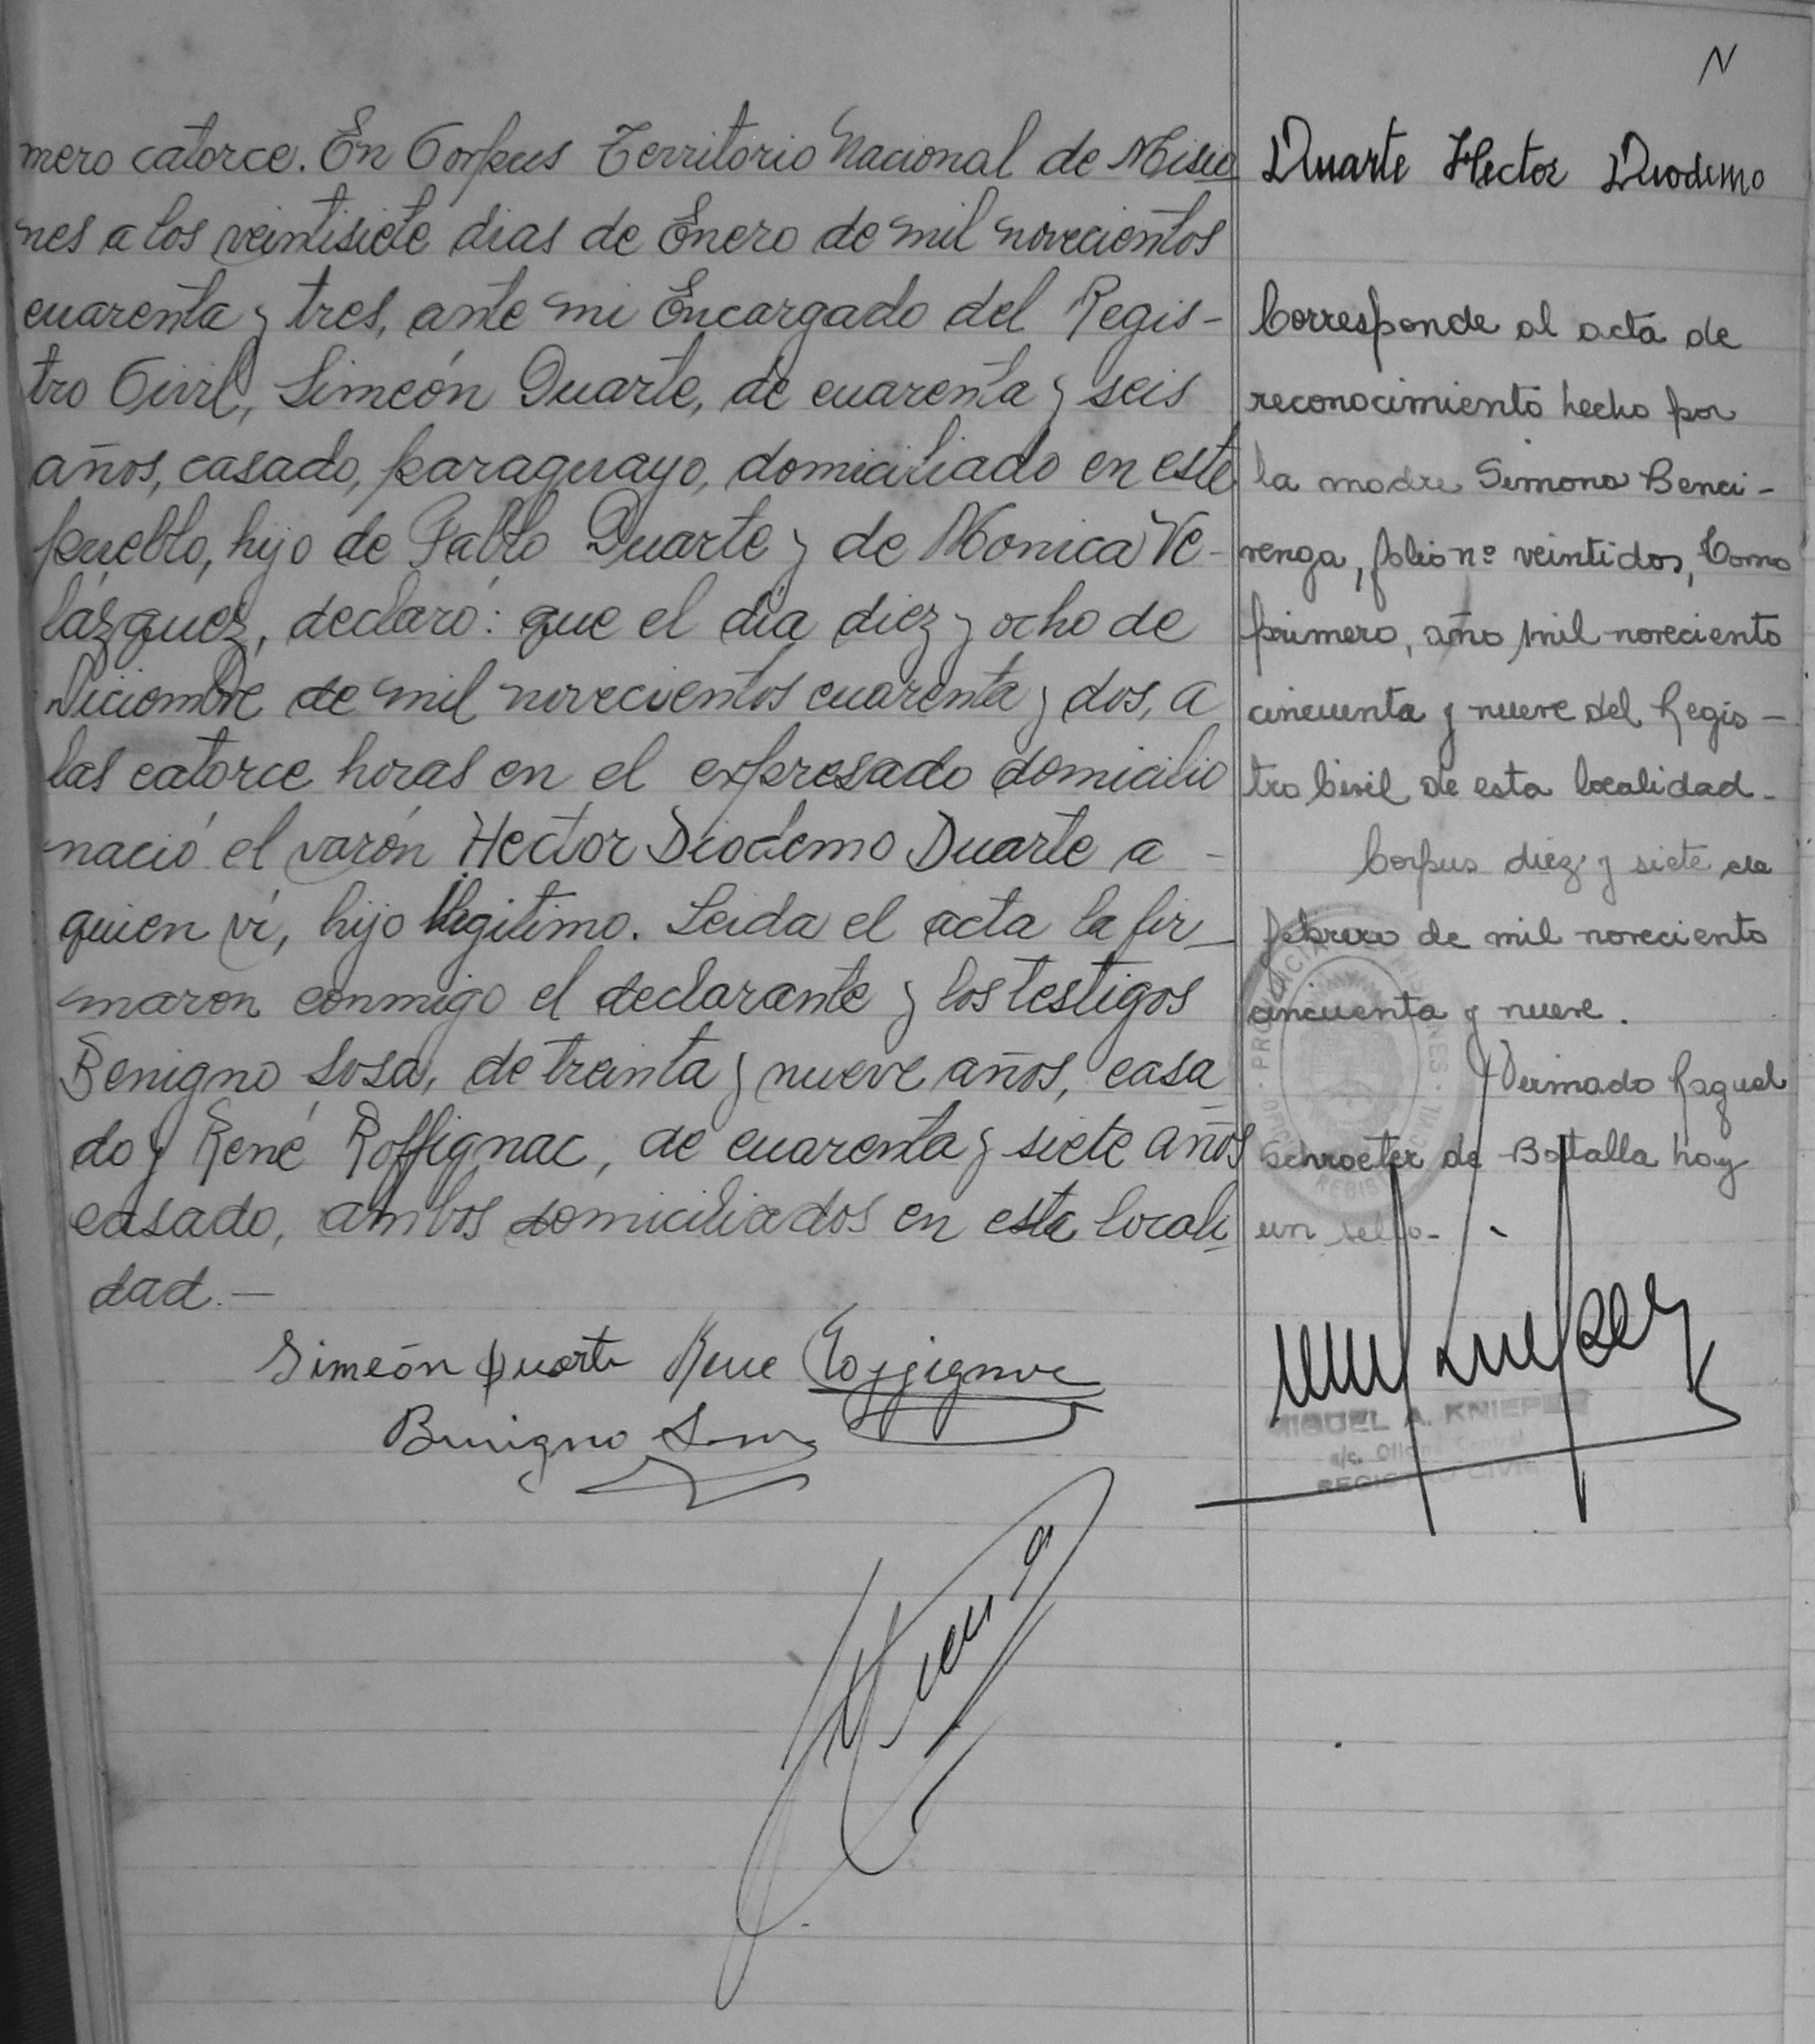 mero catorce. En Corpus Territorio Nacional de Misio
nes a los veintisiete dias de Enero de mil novecientos
cuarenta y tres, ante mi Encargado del Regis-
tro Civil, Simeón Duarte, de cuarenta y seis
años, casado, paraguayo, domiciliado en este
pueblo, hijo de Pablo Duarte y de Monica Ve-
lázquez, declaró: que el día diez y ocho de
Diciembre de mil novecientos cuarenta y dos, a
las catorce horas en el expresado domicilio
nació el varón Hector Diodemo Duarte a -
quien ví, hijo Ilegitimo. Leida el acta la fir_
maron conmigo el declarante y los testigos
Benigno Sosa, de treinta y nueve años, casa_
do y René Roffignac, de cuarenta y siete años
casado, ambos domiciliados en esta locali_
dad.—
Simeón Duarte Rene Roffignac
Benigno Sosa
N
Duarte Hector Diodemo
Corresponde al acta de
reconocimiento hecho por
la madre Simona Benci-
venga, folio nº veintidos, Tomo
primero, año mil noveciento
cincuenta y nueve del Regis-
tro Civil de esta localidad-
Corpus diez y siete de
febrero de mil noveciento
cincuenta y nueve.
Firmado Raquel
Schroeter de Botalla hay
un sello-
PROVINCIA DE MISIONES
REGISTRO CIVIL
MIGUEL A. KNIEPER
a/c. Oficina Central
REGISTRO CIVIL